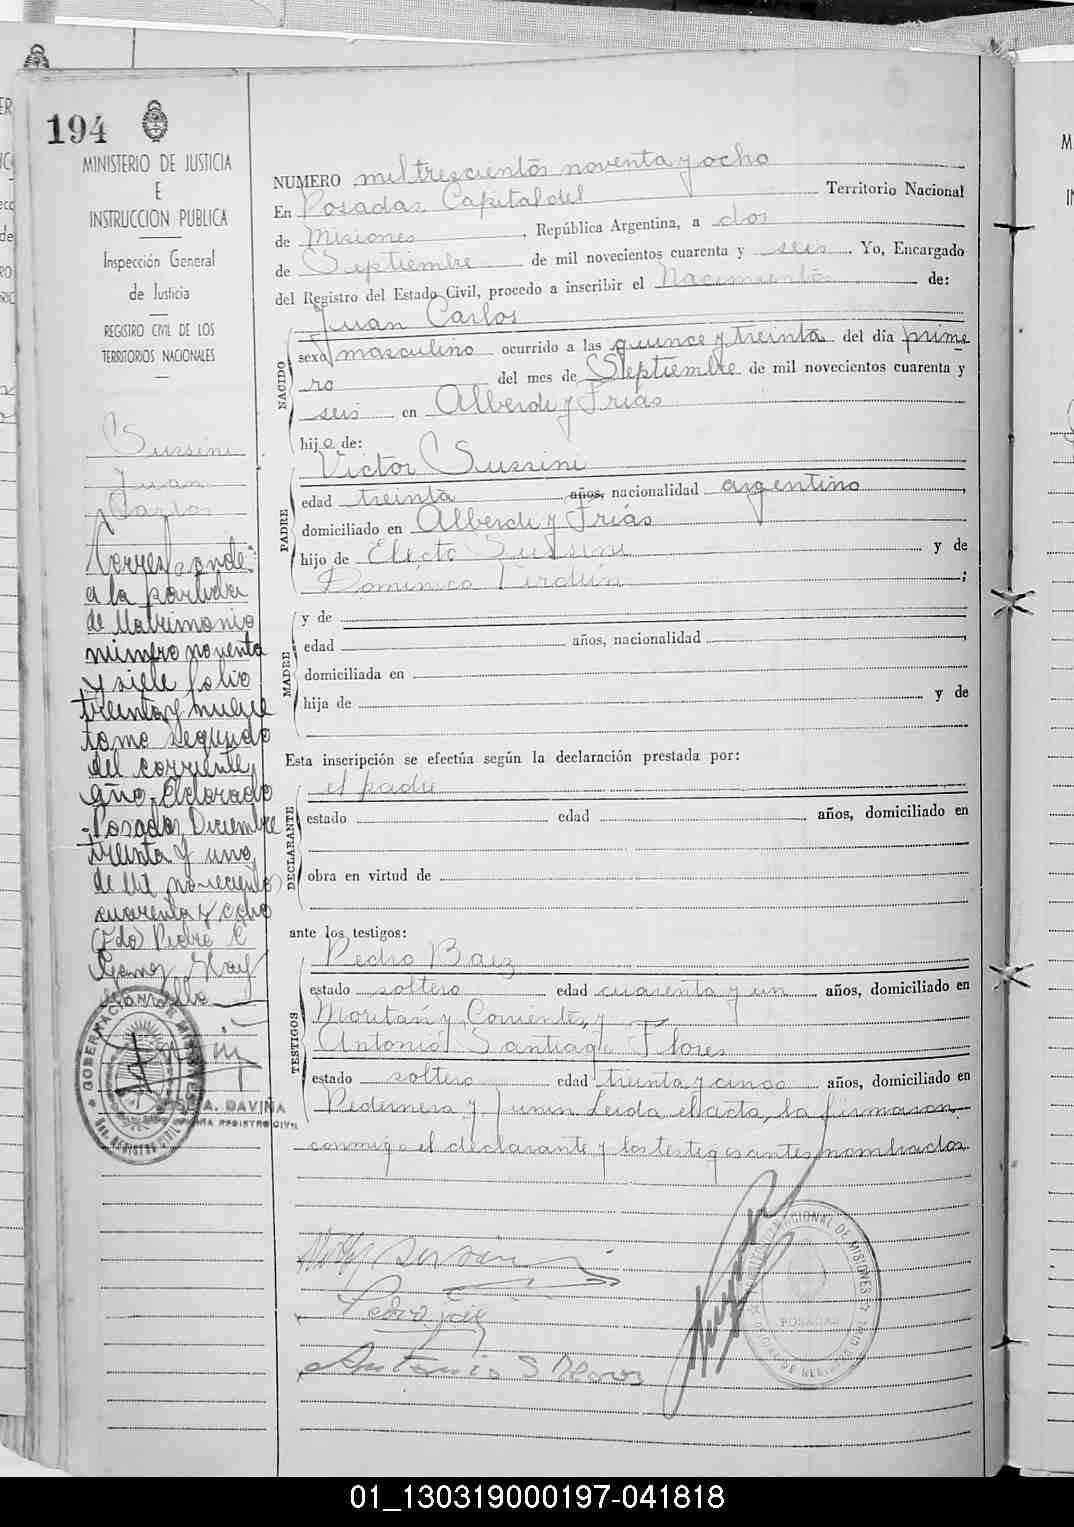 194
MINISTERIO DE JUSTICIA
E
INSTRUCCION PUBLICA
Inspección General
de Justicia
REGISTRO CIVIL DE LOS
TERRITORIOS NACIONALES
Sussini
Juan
Carlos
Corresponde
a la partida
de Matrimonio
número noventa
y siete folio
treinta y nueve
tomo segundo
del corriente
año. Eldorado
Posadas, Diciembre
treinta y uno
de mil novecientos
cuarenta y ocho
(Fdo) Pedro
GOBERNACION DE MISIONES
A. DAVIÑA
REGISTRO CIVIL
NUMERO mil trescientos noventa y ocho
En Posadas Capital del Territorio Nacional
de Misiones, República Argentina, a dos
de Septiembre de mil novecientos cuarenta y seis. Yo, Encargado
del Registro del Estado Civil, procedo a inscribir el Nacimiento de:
Juan Carlos
NACIDO
sexo masculino ocurrido a las quince y treinta del día prime
ro del mes de Septiembre de mil novecientos cuarenta y
seis en Alberdi y Frías
hijo de:
Victor Sussini
PADRE
edad treinta años, nacionalidad argentino,
domiciliado en Alberdi y Frías
hijo de Electo Sussini y de
Dominica ;
MADRE
y de
edad años, nacionalidad ,
domiciliada en
hija de y de
Esta inscripción se efectúa según la declaración prestada por:
el padre
DECLARANTE
estado edad años, domiciliado en
obra en virtud de
ante los testigos:
Pedro Baez
TESTIGOS
estado soltero edad cuarenta y un años, domiciliado en
y Corrientes, y
Antonio Santiago Flores
estado soltero edad treinta y cinco años, domiciliado en
Pedernera y Junin. Leida el acta, la firmaron
conmigo el declarante y los testigos antes nombrados
Antonio S Flores
NACIONAL DE MISIONES
POSADAS
01_130319000197-041818